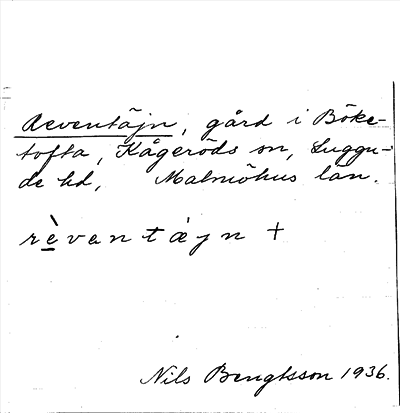 Reventäjn, gård i Böke-
tofta, Kågeröds sn, Luggu-
de hd, Malmöhus län.
rèventäjn +
Nils Bengtsson 1936.